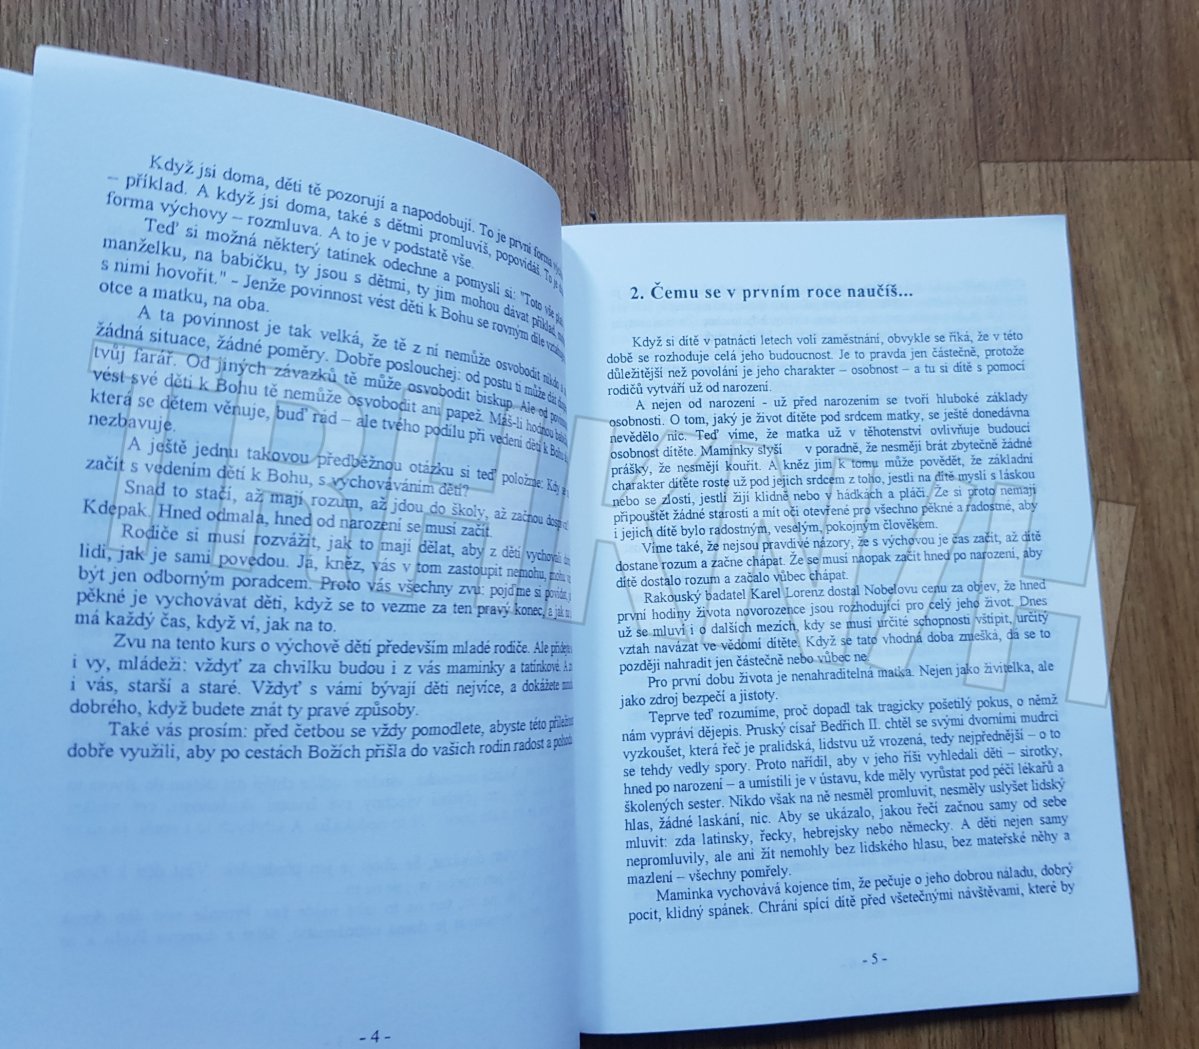 Když jsi doma, děti tě pozorují a napodobují. To je první forma
– příklad. A když jsi doma, také s dětmi promluvíš, popovídáš. To je
forma výchovy – rozmluva. A to je v podstatě vše.
Teď si možná některý tatínek odechne a pomyslí si: "Toto vše
manželku, na babičku, ty jsou s dětmi, ty jim mohou dávat příklad,
s nimi hovořit." - Jenže povinnost vést děti k Bohu se rovným dílem
otce a matku, na oba.
A ta povinnost je tak velká, že tě z ní nemůže osvobodit nikdo
žádná situace, žádné poměry. Dobře poslouchej: od postu ti může dát
tvůj farář. Od jiných závazků tě může osvobodit biskup. Ale od
vést své děti k Bohu tě nemůže osvobodit ani papež. Máš-li hodnou
která se dětem věnuje, buď rád – ale tvého podílu při vedení dětí k Bohu
nezbavuje.
A ještě jednu takovou předběžnou otázku si teď položme: Kdy se
začít s vedením dětí k Bohu, s vychováváním dětí?
Snad to stačí, až mají rozum, až jdou do školy, až začnou
Kdepak. Hned odmala, hned od narození se musí začít.
Rodiče si musí rozvážit, jak to mají dělat, aby z dětí vychovali
lidi, jak je sami povedou. Já, kněz, vás v tom zastoupit nemohu, mohu
být jen odborným poradcem. Proto vás všechny zvu: pojďme si povídat,
pěkné je vychovávat děti, když se to vezme za ten pravý konec, a jak na
má každý čas, když ví, jak na to.
Zvu na tento kurs o výchově dětí především mladé rodiče. Ale přijďte
i vy, mládeži: vždyť za chvilku budou i z vás maminky a tatínkové. A
i vás, starší a staré. Vždyť s vámi bývají děti nejvíce, a dokážete
dobrého, když budete znát ty pravé způsoby.
Také vás prosím: před četbou se vždy pomodlete, abyste této příležitosti
dobře využili, aby po cestách Božích přišla do vašich rodin radost a pohoda.
- 4 -
2. Čemu se v prvním roce naučíš...
Když si dítě v patnácti letech volí zaměstnání, obvykle se říká, že v této
době se rozhoduje celá jeho budoucnost. Je to pravda jen částečně, protože
důležitější než povolání je jeho charakter – osobnost – a tu si dítě s pomocí
rodičů vytváří už od narození.
A nejen od narození - už před narozením se tvoří hluboké základy
osobnosti. O tom, jaký je život dítěte pod srdcem matky, se ještě donedávna
nevědělo nic. Teď víme, že matka už v těhotenství ovlivňuje budoucí
osobnost dítěte. Maminky slyší v poradně, že nesmějí brát zbytečně žádné
prášky, že nesmějí kouřit. A kněz jim k tomu může povědět, že základní
charakter dítěte roste už pod jejich srdcem z toho, jestli na dítě myslí s láskou
nebo se zlostí, jestli žijí klidně nebo v hádkách a pláči. Že si proto nemají
připouštět žádné starosti a mít oči otevřené pro všechno pěkné a radostné, aby
i jejich dítě bylo radostným, veselým, pokojným člověkem.
Víme také, že nejsou pravdivé názory, že s výchovou je čas začít, až dítě
dostane rozum a začne chápat. Že se musí naopak začít hned po narození, aby
dítě dostalo rozum a začalo vůbec chápat.
Rakouský badatel Karel Lorenz dostal Nobelovu cenu za objev, že hned
první hodiny života novorozence jsou rozhodující pro celý jeho život. Dnes
už se mluví i o dalších mezích, kdy se musí určité schopnosti vštípit, určitý
vztah navázat ve vědomí dítěte. Když se tato vhodná doba zmešká, dá se to
později nahradit jen částečně nebo vůbec ne.
Pro první dobu života je nenahraditelná matka. Nejen jako živitelka, ale
jako zdroj bezpečí a jistoty.
Teprve teď rozumíme, proč dopadl tak tragicky pošetilý pokus, o němž
nám vypráví dějepis. Pruský císař Bedřich II. chtěl se svými dvorními mudrci
vyzkoušet, která řeč je pralidská, lidstvu už vrozená, tedy nejpřednější – o to
se tehdy vedly spory. Proto nařídil, aby v jeho říši vyhledali děti – sirotky,
hned po narození – a umístili je v ústavu, kde měly vyrůstat pod péčí lékařů a
školených sester. Nikdo však na ně nesměl promluvit, nesměly uslyšet lidský
hlas, žádné laskání, nic. Aby se ukázalo, jakou řečí začnou samy od sebe
mluvit: zda latinsky, řecky, hebrejsky nebo německy. A děti nejen samy
nepromluvily, ale ani žít nemohly bez lidského hlasu, bez mateřské něhy a
mazlení – všechny pomřely.
Maminka vychovává kojence tím, že pečuje o jeho dobrou náladu, dobrý
pocit, klidný spánek. Chrání spící dítě před všetečnými návštěvami, které by
- 5 -